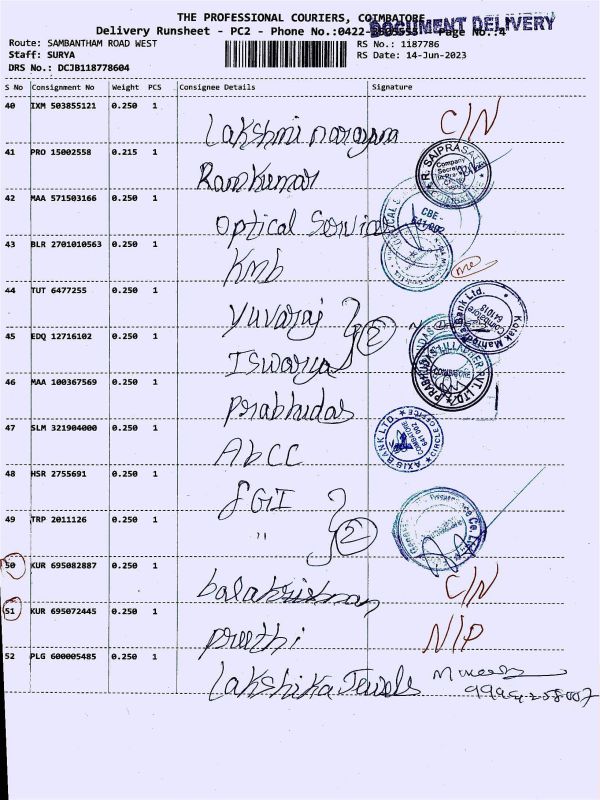 THE PROFESSIONAL COURIERS, COIMBATORE
DOCUMENT DELIVERY
Delivery Runsheet - PC2 - Phone No.:0422- Page No.:4
Route: SAMBANTHAM ROAD WEST
RS No.: 1187786
Staff: SURYA
RS Date: 14-Jun-2023
DRS No.: DCJB118778604
S No Consignment No Weight PCS Consignee Details Signature
40 IXM 503855121 0.250 1
Lakshmi narayana C/N
41 PRO 15002558 0.215 1
Ramkumar
R. SAIPRASAD
Company
42 MAA 571503166 0.250 1
Optical Services
CBE -
641 002
43 BLR 2701010563 0.250 1
Kmb
44 TUT 6477255 0.250 1
Yuvaraj
Kotak Mahindra Bank Ltd.
Coimbatore
641018
45 EDQ 12716102 0.250 1
Iswarya 2
PRABHUDAS LILLADHER PVT. LTD.
COIMBATORE
46 MAA 100367569 0.250 1
Prabhudas
47 SLM 321904000 0.250 1
ABCC
AXIS BANK LTD
CIRCLE OFFICE
COIMBATORE
641 002
48 HSR 2755691 0.250 1
FGI
49 TRP 2011126 0.250 1
" 2
50 KUR 695082887 0.250 1
balakrishnan C/N
51 KUR 695072445 0.250 1
preethi N/P
52 PLG 600005485 0.250 1
Lakshika Jewels